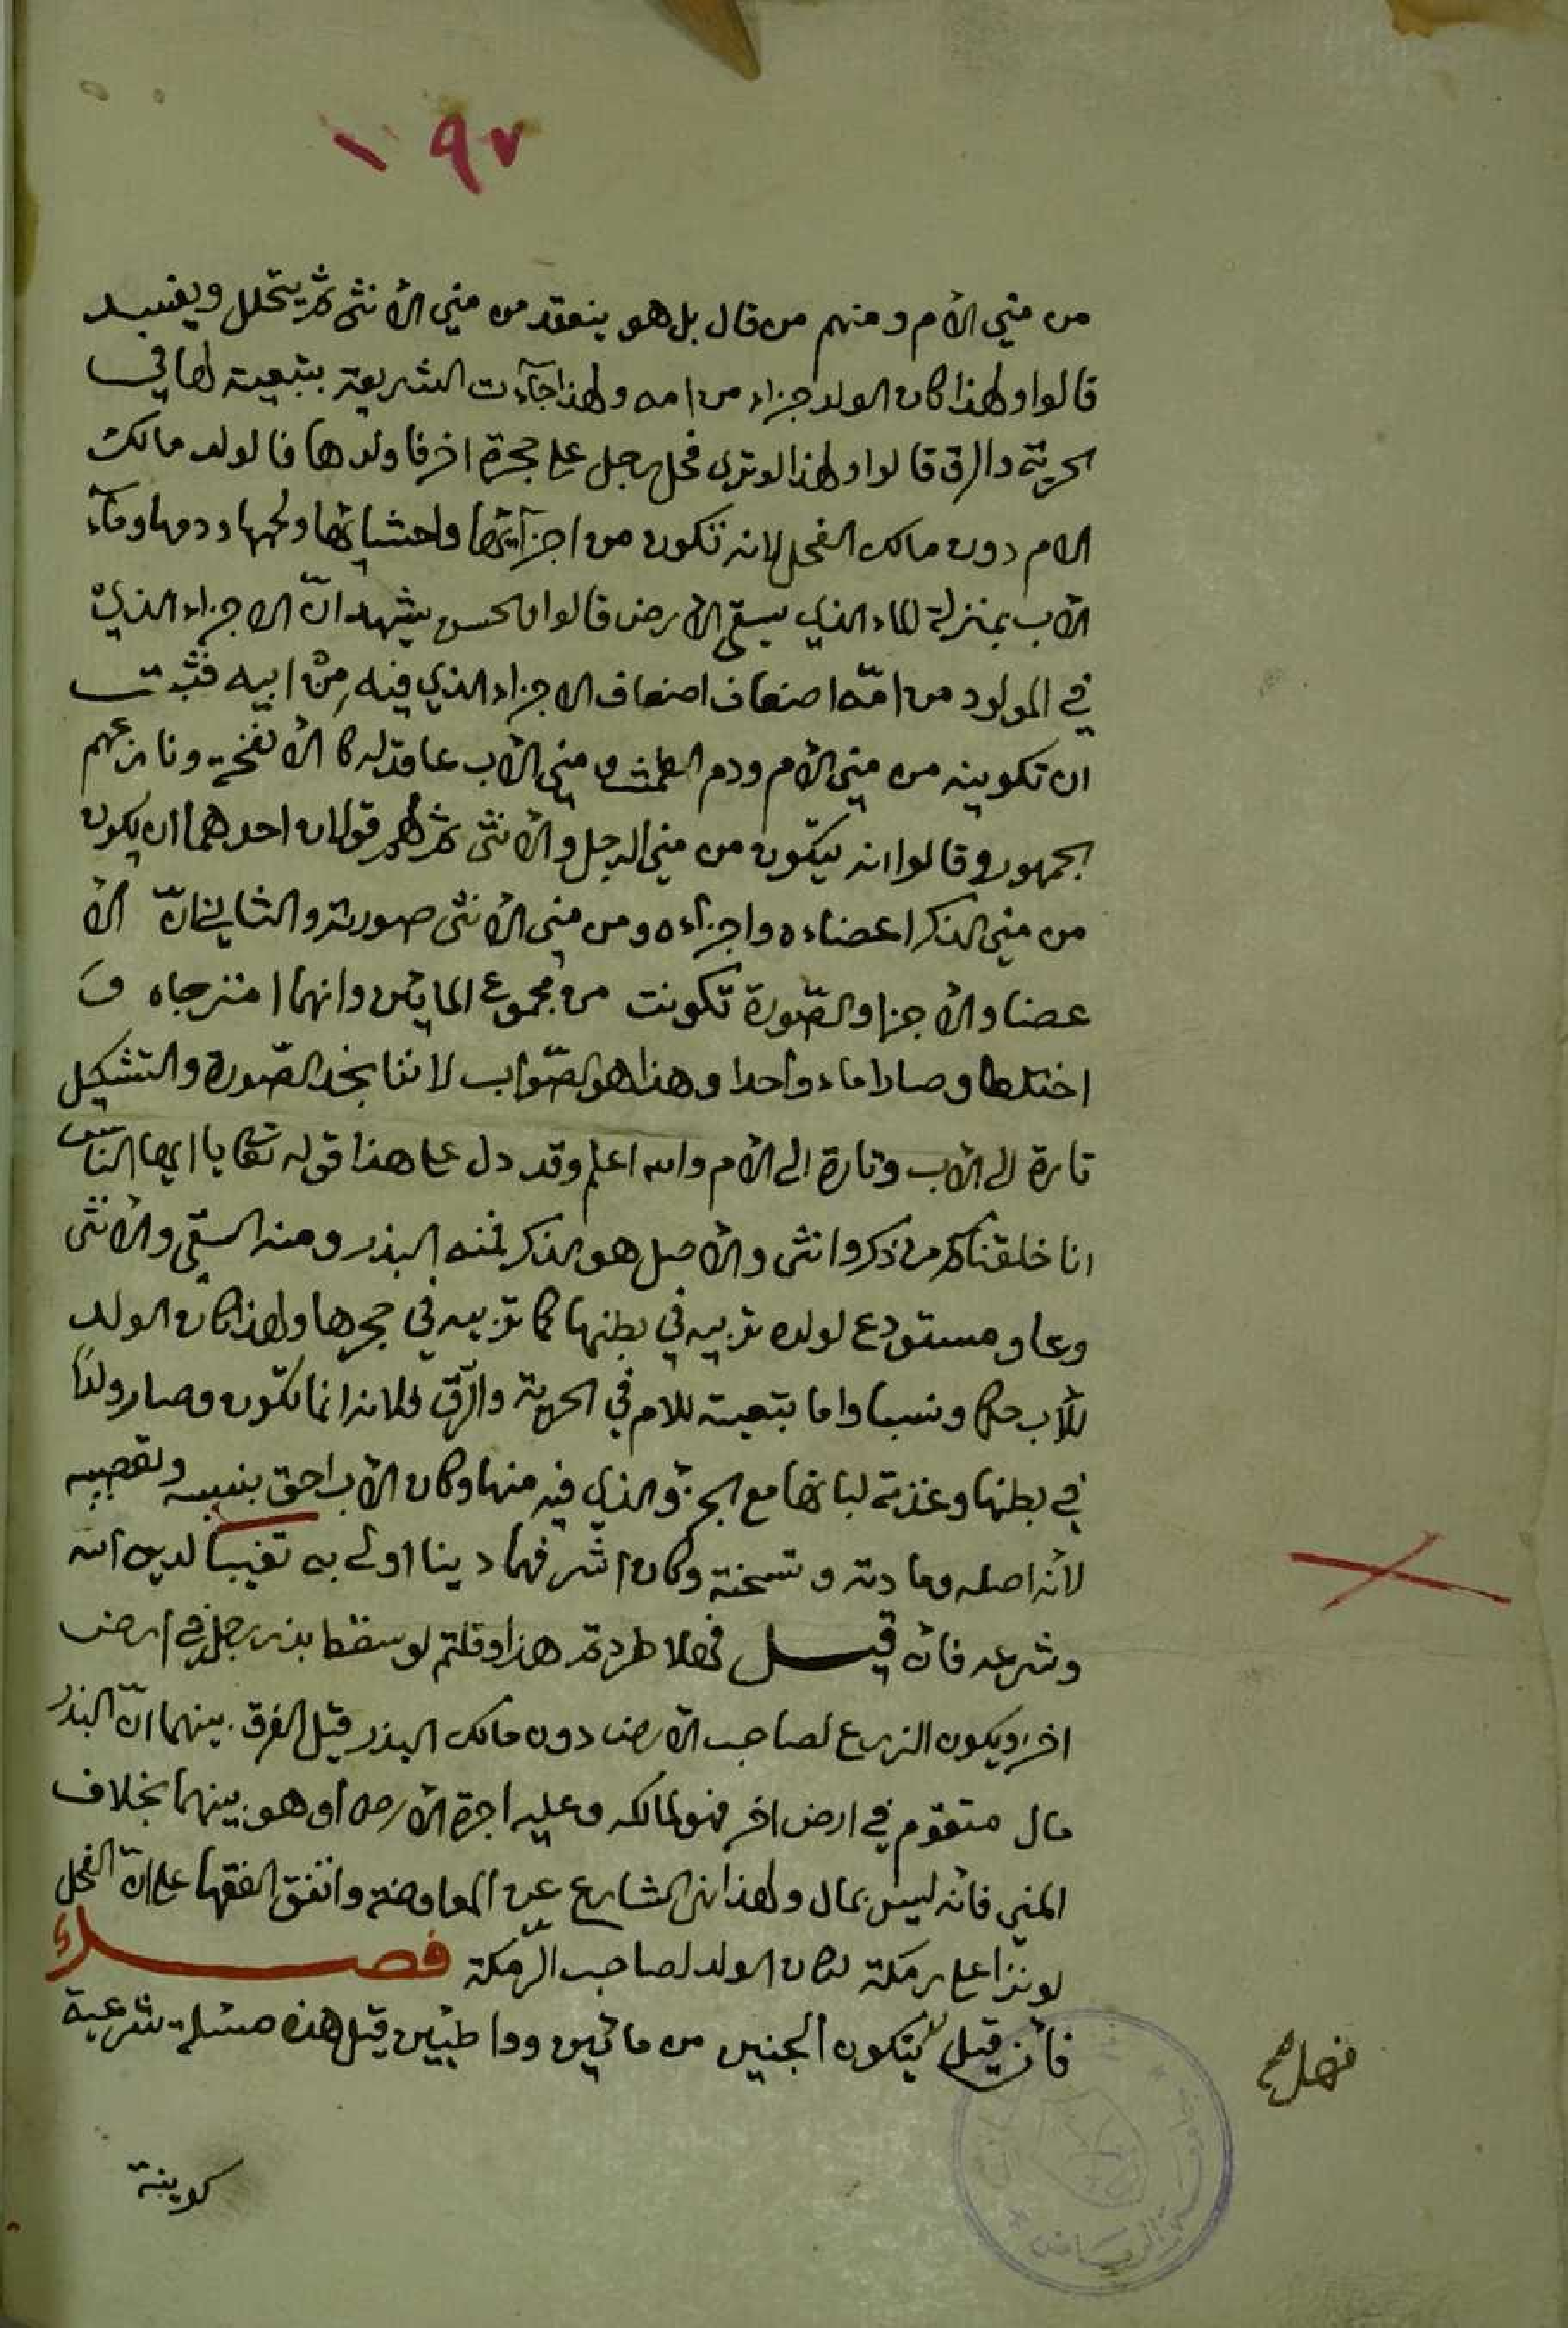 ١٩٧
من مني الأم ومنهم من قال بل هو ينعقد من مني الأنثى ثم يتحلل ويفسد
قالوا ولهذا كان الولد جزاء من امه ولهذا جآءت الشريعة بتبعيته لها في
الحرية والرق قالوا ولهذا لو نزى فحل رجل على حجرة اخر فاولدها فالولد مالك
الام دون مالك الفحل لانه تكون من اجزآئها واحشائها ولحمها ودمها ومآء
الأب بمنزلة الماء الذي يسقي الأرض قالوا والحس يشهد انّ الاجزاء الذي
في المولود من امّه اضعاف اضعاف الاجزاء الذي فيه من ابيه فثبت
ان تكوينه من مني الأم ودم الطمث ومني الأب عاقد له كالأنفخة ونازعهم
الجمهور وقالوا انه يتكون من مني الرجل والأنثى ثم لهم قولان احدهما ان يكون
من مني الذكر اعضاءه واجزاءه ومن مني الأنثى صورته والثاني انّ الأ
عضا والأجزا والصّورة تكونت من مجموع المايين وانهما امتزجاه و
اختلطا وصارا ماء واحدا وهذا هو الصّواب لاننا نجد الصّورة والتشكيل
تارة الى الأب وتارة الى الأم والله اعلم وقد دل على هذا قوله تعا يا ايها الناس
انا خلقناكم من ذكر وانثى والأصل هو الذكر فمنه البذر ومنه السقي والأنثى
وعا ومستودع لولده تربيه في بطنها كما تربيه في حجرها ولهذا كان الولد
للأب حكما ونسبا واما بتعيته للام في الحرية والرّق فلانه انما تكون وصار ولدًا
في بطنها وغذته لبانها مع الجزؤ الذي فيه منها وكان الأب احق بنسبه وتعصيبه
لأنه اصله ومادته ونسخته وكان اشرفهما دينا اولى به تغيبا لدين الله
وشرعه فان قيل فهلا طردتم هذا وقلتم لو سقط بذر رجل في ارض
اخر ويكون الزرع لصاحب الأرض دون مالك البذر قيل الفرق بينهما انّ البذر
مال متقوّم في ارض اخر فهو لمالكه وعليه اجرة الأرض او هو بينهما بخلاف
المني فانه ليس بمال ولهذا نهى الشارع عن المعاوضة واتفق الفقها على انّ الفحل
لو نزا على رمكة لكان الولد لصاحب الرّمكة فصل
فان قيل يتكون الجنين من مائين وواطئين قيل هذه مسئلة شرعية
كوينة